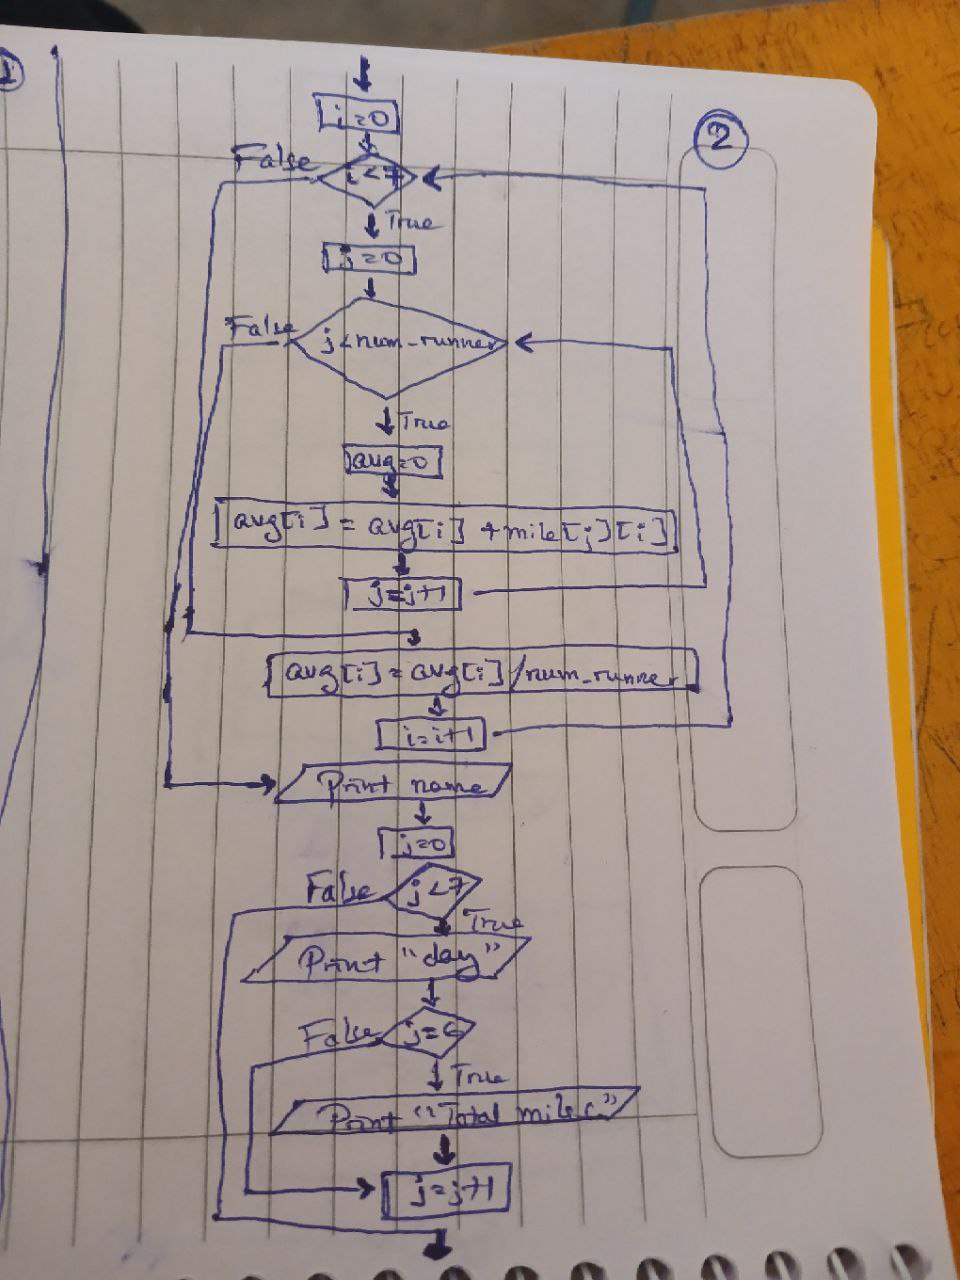 1
2
i=0
False
i<7
True
j=0
False
j<num_runner
True
avg=0
avg[i] = avg[i] + mile[j][i]
j=j+1
avg[i] = avg[i] / num_runner
i=i+1
Print name
j=0
False
j<7
True
Print "day"
False
j=6
True
Print "Total miles"
j=j+1